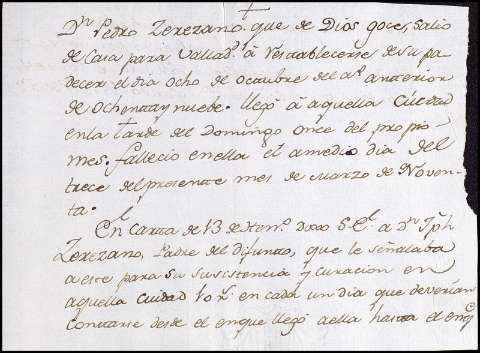 Dn Pedro Zerezano, que de Dios goce, salio
de Casa para Vallad. à restablecerse de su pa
decer el dia ocho de octubre del aº antterior
de ochenta y nuebe. llegó à aquella Ciudad
en la tarde del Domingo once del propio
mes. fallecio en ella el a medio dia del
trece del presente mes de Marzo de Noven
ta.
En Carta de 13 de S.E. a Dn Jph
Zerezano, Padre del difunto, que le señalaba
a este para su susistencia y curacion en
aquella ciudad 10 rs. en cada un dia que deverian
contarse desde el en que llegó a ella hasta el en q